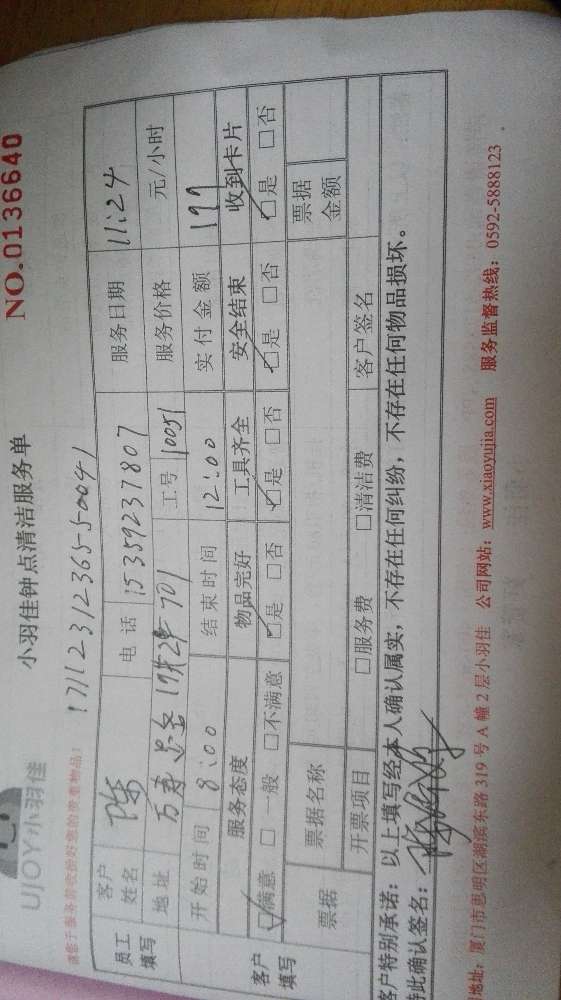 UJOY小羽佳
小羽佳钟点清洁服务单
NO.0136640
请您于服务前收拾好您的贵重物品！
1711231236550041
员工填写
客户姓名 陈 电话 15359237807 服务日期 11:24
地址 万寿 17#2# 701 工号 10051 服务价格 元/小时
开始时间 8:00 结束时间 12:00 实付金额 199
客户填写
服务态度 物品完好 工具齐全 安全结束 收到卡片
☑满意 □一般 □不满意 ☑是 □否 ☑是 □否 ☑是 □否 ☑是 □否
票据 票据名称 票据金额
开票项目 □服务费 □清洁费 客户签名
客户特别承诺：以上填写经本人确认属实，不存在任何纠纷，不存在任何物品损坏。
特此确认签名：
地址：厦门市思明区湖滨东路319号A幢2层小羽佳 公司网站：www.xiaoyujia.com 服务监督热线：0592-5888123